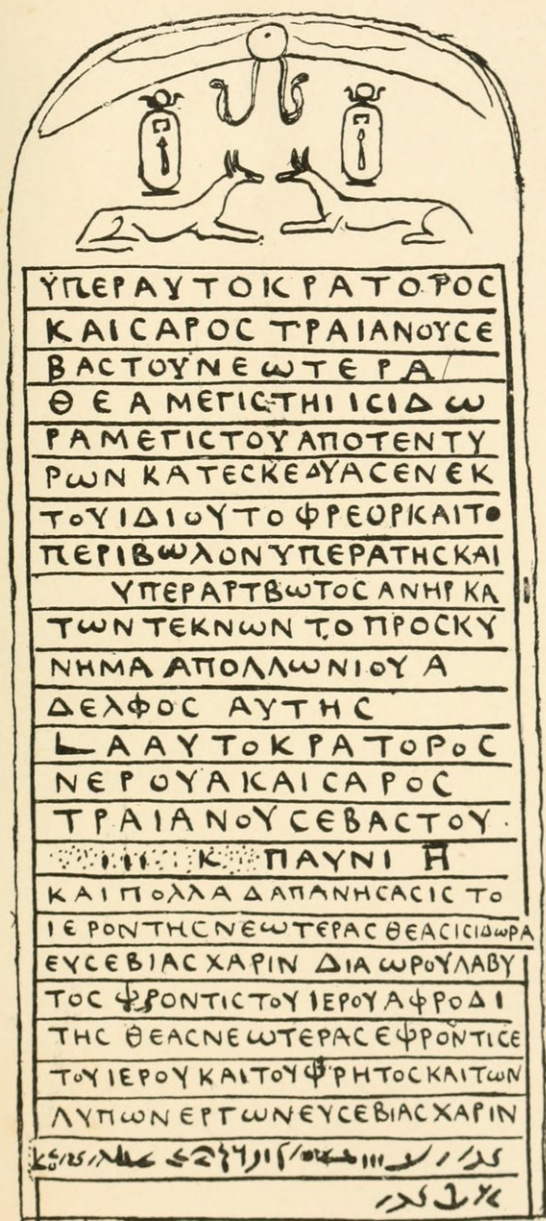 ΥΠΕΡΑΥΤΟΚΡΑΤΟΡΟC
ΚΑΙCΑΡΟC ΤΡΑΙΑΝΟΥCΕ
ΒΑCΤΟΥΝΕωΤΕΡΑ
ΘΕΑ ΜΕΓΙCΤΗΙ ΙCΙΔω
ΡΑΜΕΓΙCΤΟΥΑΠΟΤΕΝΤΥ
ΡωΝ ΚΑΤΕCΚΕΔΥΑCΕΝΕΚ
ΤΟΥΙΔΙΟΥΤΟΦΡΕΟΡΚΑΙΤΟ
ΠΕΡΙΒωΛΟΝΥΠΕΡΑΤΗCΚΑΙ
ΥΠΕΡΑΡΤΒωΤΟCΑΝΗΡΚΑ
ΤωΝΤΕΚΝωΝ ΤΟ ΠΡΟCΚΥ
ΝΗΜΑ ΑΠΟΛΛωΝΙΟΥ Α
ΔΕΛΦΟC ΑΥΤΗC
LΑΑΥΤΟΚΡΑΤΟΡΟC
ΝΕΡΟΥΑΚΑΙCΑΡΟC
ΤΡΑΙΑΝΟΥCΕΒΑCΤΟΥ
ΠΑΥΝΙ Η
ΚΑΙΠΟΛΛΑ ΔΑΠΑΝΗCΑCΙC ΤΟ
ΙΕΡΟΝΤΗCΝΕωΤΕΡΑC ΘΕΑCΙCΙΔωΡΑ
ΕΥCΕΒΙΑC ΧΑΡΙΝ ΔΙΑ ωΡΟΥΛΑΒΥ
ΤΟC ΦΡΟΝΤΙCΤΟΥ ΙΕΡΟΥΑΦΡΟΔΙ
ΤΗC ΘΕΑCΝΕωΤΕΡΑCΕΦΡΟΝΤΙCΕ
ΤΟΥΙΕΡΟΥΚΑΙΤΟΥΦΡΗΤΟCΚΑΙΤωΝ
ΛΥΠωΝ ΕΡΓωΝΕΥCΕΒΙΑCΧΑΡΙΝ